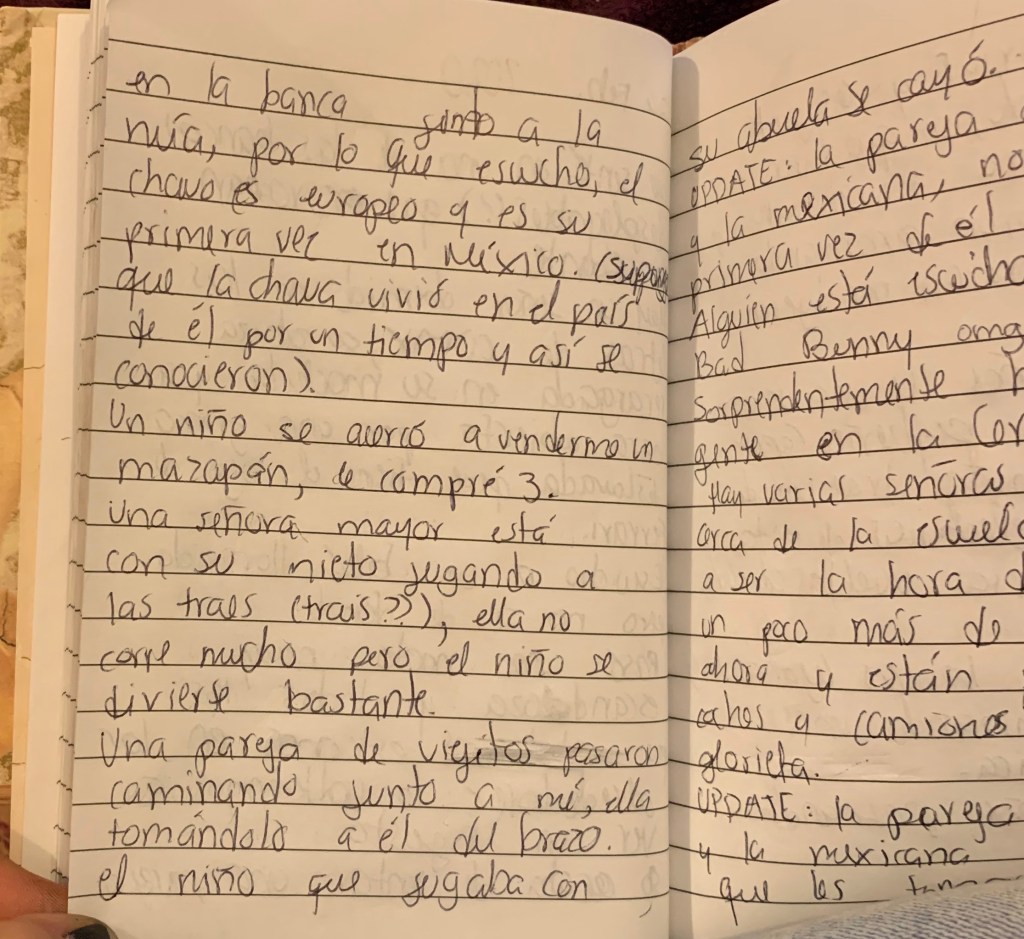 en la banca junto a la
mía, por lo que escucho, el
chavo es europeo y es su
primera vez en México. (supongo
que la chava vivió en el país
de él por un tiempo y así se
conocieron).
Un niño se acercó a venderme un
mazapán, le compré 3.
Una señora mayor está
con su nieto jugando a
las traes (trais??), ella no
corre mucho pero el niño se
divierte bastante.
Una pareja de viejitos pasaron
caminando junto a mí, ella
tomándolo a él del brazo.
el niño que jugaba con
su abuela se cayó.
UPDATE: la pareja
y la mexicana, no
primera vez de él
Alguien está escucha
Bad Bunny omg
Sorprendentemente h
gente en la Con
Hay varias señoras
cerca de la escuela
a ser la hora d
un poco más de
ahora y están
coches y camiones
glorieta.
UPDATE: la pareja
y la mexicana
que les